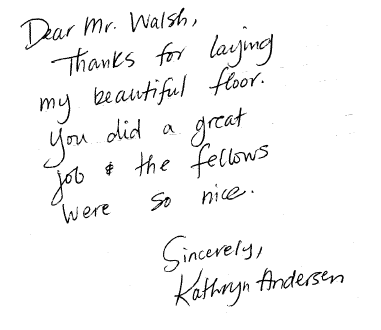 Dear Mr. Walsh,
Thanks for laying
my beautiful floor.
You did a great
job & the fellows
were so nice.
Sincerely,
Kathryn Andersen